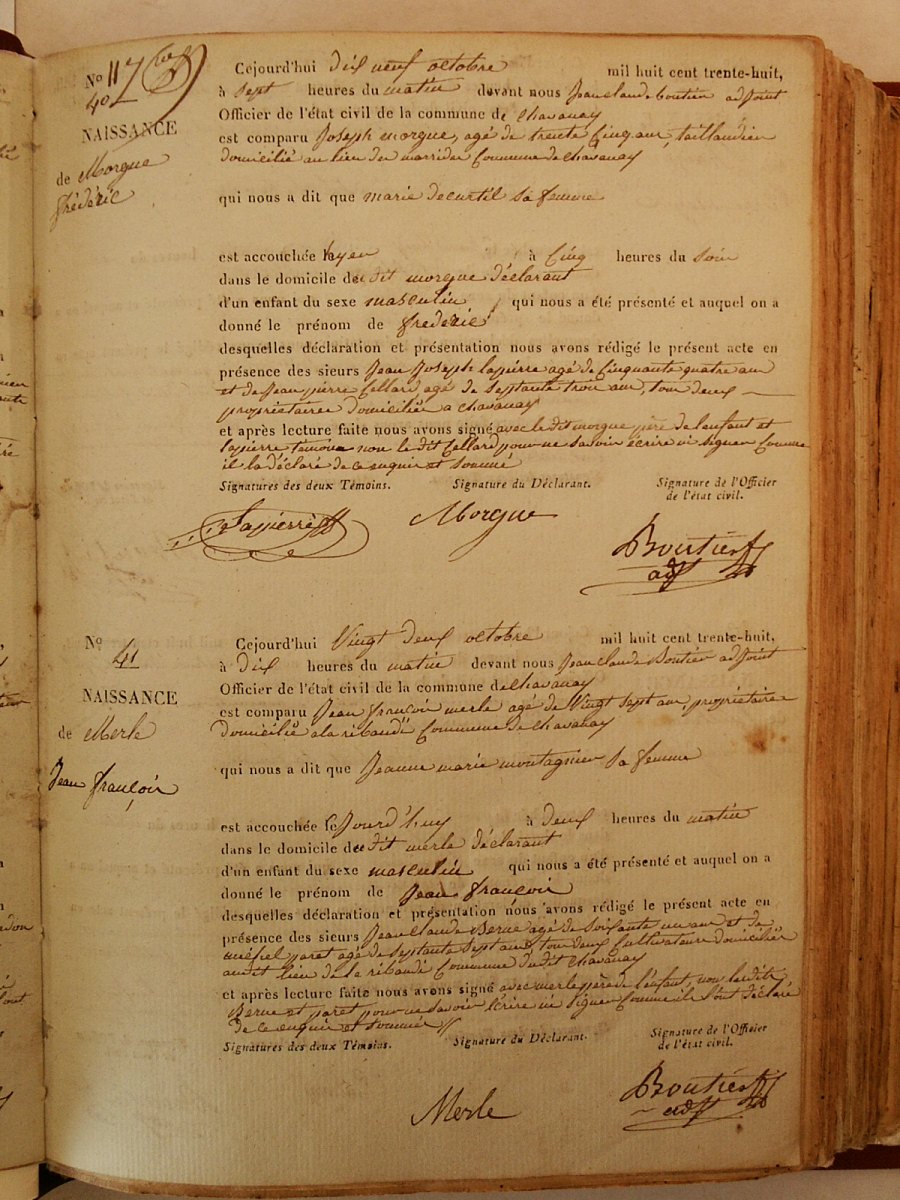 No 117
40
NAISSANCE
de Morgue
frédéric
Cejourd'hui dix neuf octobre mil huit cent trente-huit,
à sept heures du matin devant nous Jean claude boutier adjoint
Officier de l'état civil de la commune de chavanay
est comparu Joseph morgue, agé de trente cinq ans, taillandier
domicilié au lieu du commune de chavanay
qui nous a dit que marie decurtil sa femme
est accouchée hyer à cinq heures du soir
dans le domicile du dit morgue déclarant
d'un enfant du sexe masculin qui nous a été présenté et auquel on a
donné le prénom de frederic
desquelles déclaration et présentation nous avons rédigé le présent acte en
présence des sieurs Jean Joseph lapierre agé de cinquante quatre ans
et de Jean pierre Cellard agé de septante trois ans, tous deux
propriétaires domiciliés a chavanay
et après lecture faite nous avons signé avec le dit morgue père de l'enfant et
lapierre temoin non le dit Cellard pour ne savoir écrire ni signer comme
il la déclaré de ce enquir et sommé
Signatures des deux Témoins. Signature du Déclarant. Signature de l'Officier
de l'état civil.
Lapierre Morgue
Boutier
adj
No 41
NAISSANCE
de Merle
Jean françois
Cejourd'hui Vingt deux octobre mil huit cent trente-huit,
à dix heures du matin devant nous Jean claude Boutier adjoint
Officier de l'état civil de la commune de chavanay
est comparu Jean françois merle agé de Vingt sept ans propriétaire
domicilié a la ribaudi Commune de chavanay
qui nous a dit que Jeanne marie montagnier sa femme
est accouchée ce Jourd'huy à deux heures du matin
dans le domicile du dit merle déclarant
d'un enfant du sexe masculin qui nous a été présenté et auquel on a
donné le prénom de Jean françois
desquelles déclaration et présentation nous avons rédigé le présent acte en
présence des sieurs Jean Claude Berne agé de soixante un ans et de
paret agé de septante sept ans tous deux Cultivateurs domiciliés
audit lieu de la ribaudi Commune du dit chavanay
et après lecture faite nous avons signé avec merle père de l'enfant, non les dits
Berne et paret pour ne savoir écrire ni signer comme ils l'ont déclaré
de ce enquir et sommés
Signatures des deux Témoins. Signature du Déclarant. Signature de l'Officier
de l'état civil.
Merle
Boutier
adj